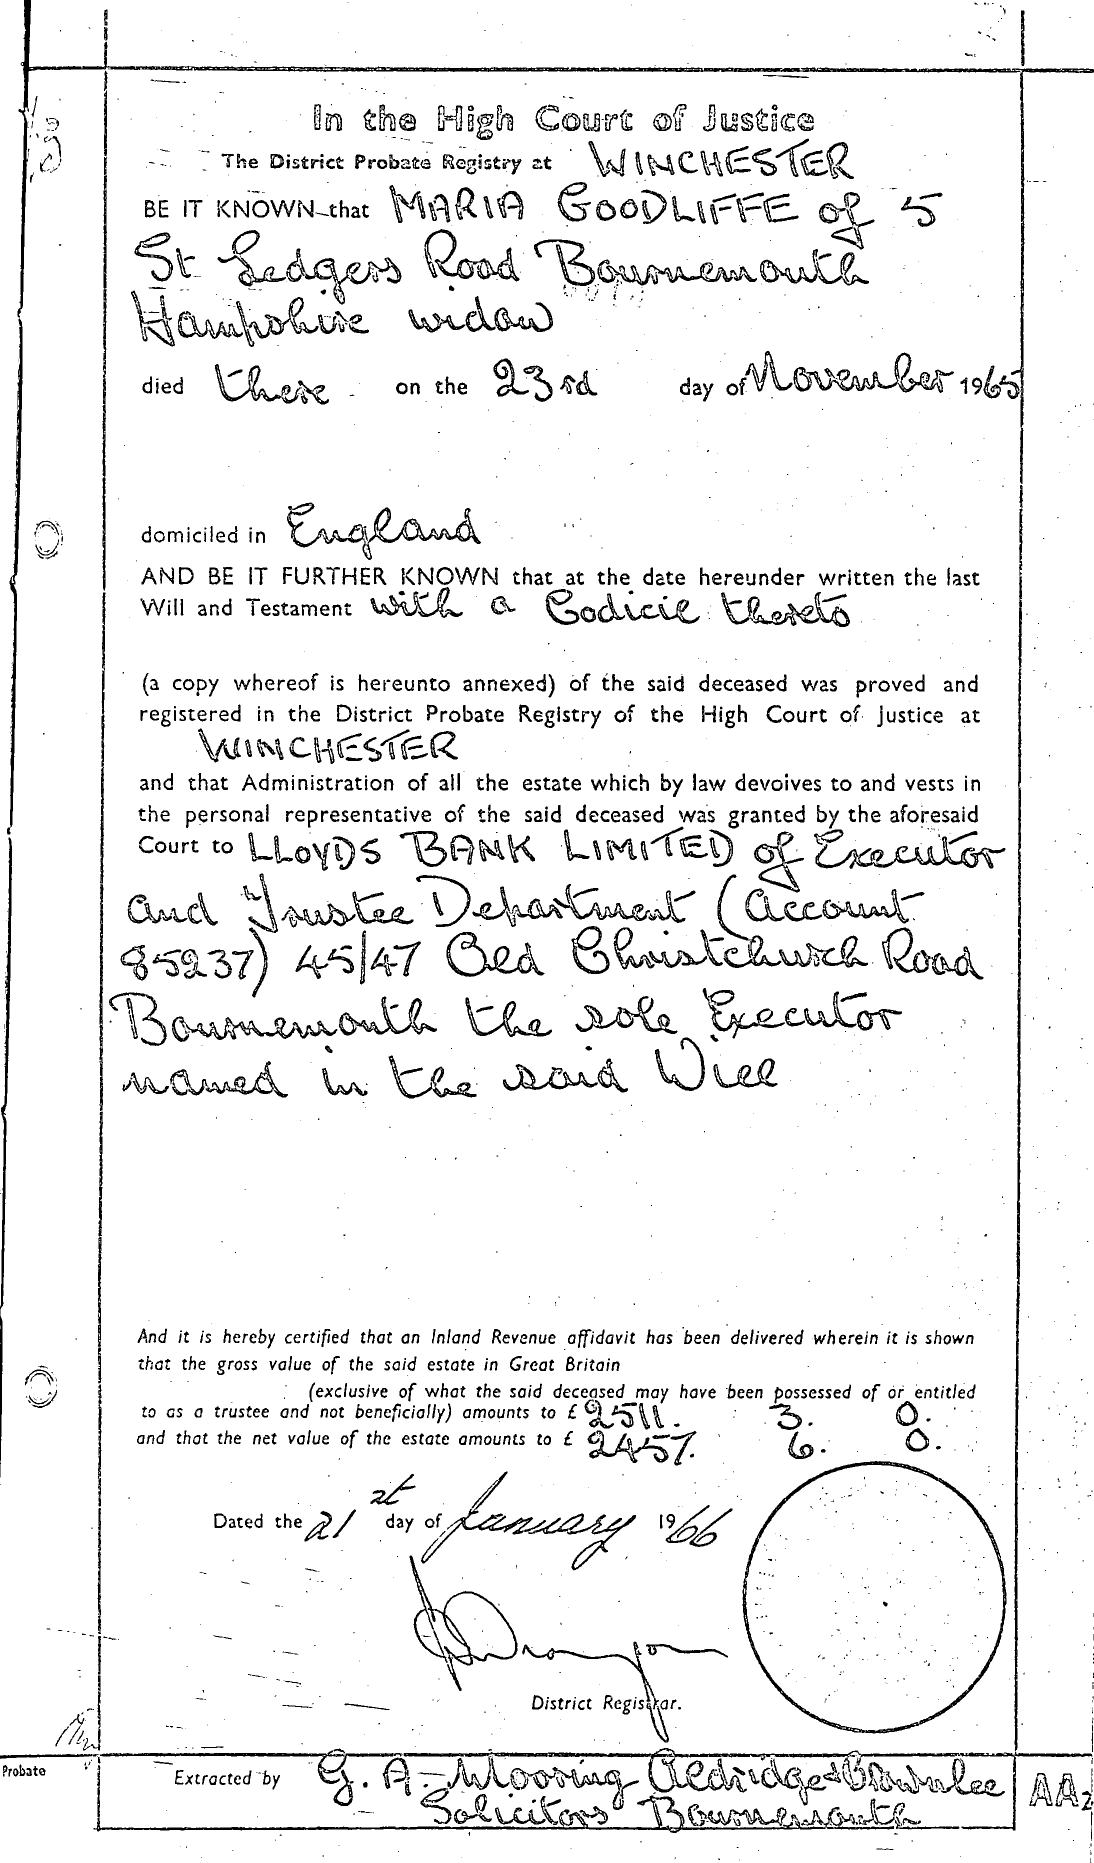 In the High Court of Justice
The District Probate Registry at WINCHESTER
BE IT KNOWN that MARIA GOODLIFFE of 5
St Ledgers Road Bournemouth
Hampshire widow
died there on the 23rd day of November 1965
domiciled in England
AND BE IT FURTHER KNOWN that at the date hereunder written the last
Will and Testament with a Codicil thereto
(a copy whereof is hereunto annexed) of the said deceased was proved and
registered in the District Probate Registry of the High Court of Justice at
WINCHESTER
and that Administration of all the estate which by law devolves to and vests in
the personal representative of the said deceased was granted by the aforesaid
Court to LLOYDS BANK LIMITED of Executor
and Trustee Department (Account
85237) 45/47 Old Christchurch Road
Bournemouth the sole Executor
named in the said Will
And it is hereby certified that an Inland Revenue affidavit has been delivered wherein it is shown
that the gross value of the said estate in Great Britain
(exclusive of what the said deceased may have been possessed of or entitled
to as a trustee and not beneficially) amounts to £ 2511. 3. 0.
and that the net value of the estate amounts to £ 2457. 6. 0.
Dated the 21st day of January 1966
District Registrar.
Probate
Extracted by G. A. Mooring Aldridge & Brownlee
Solicitors Bournemouth
AA2